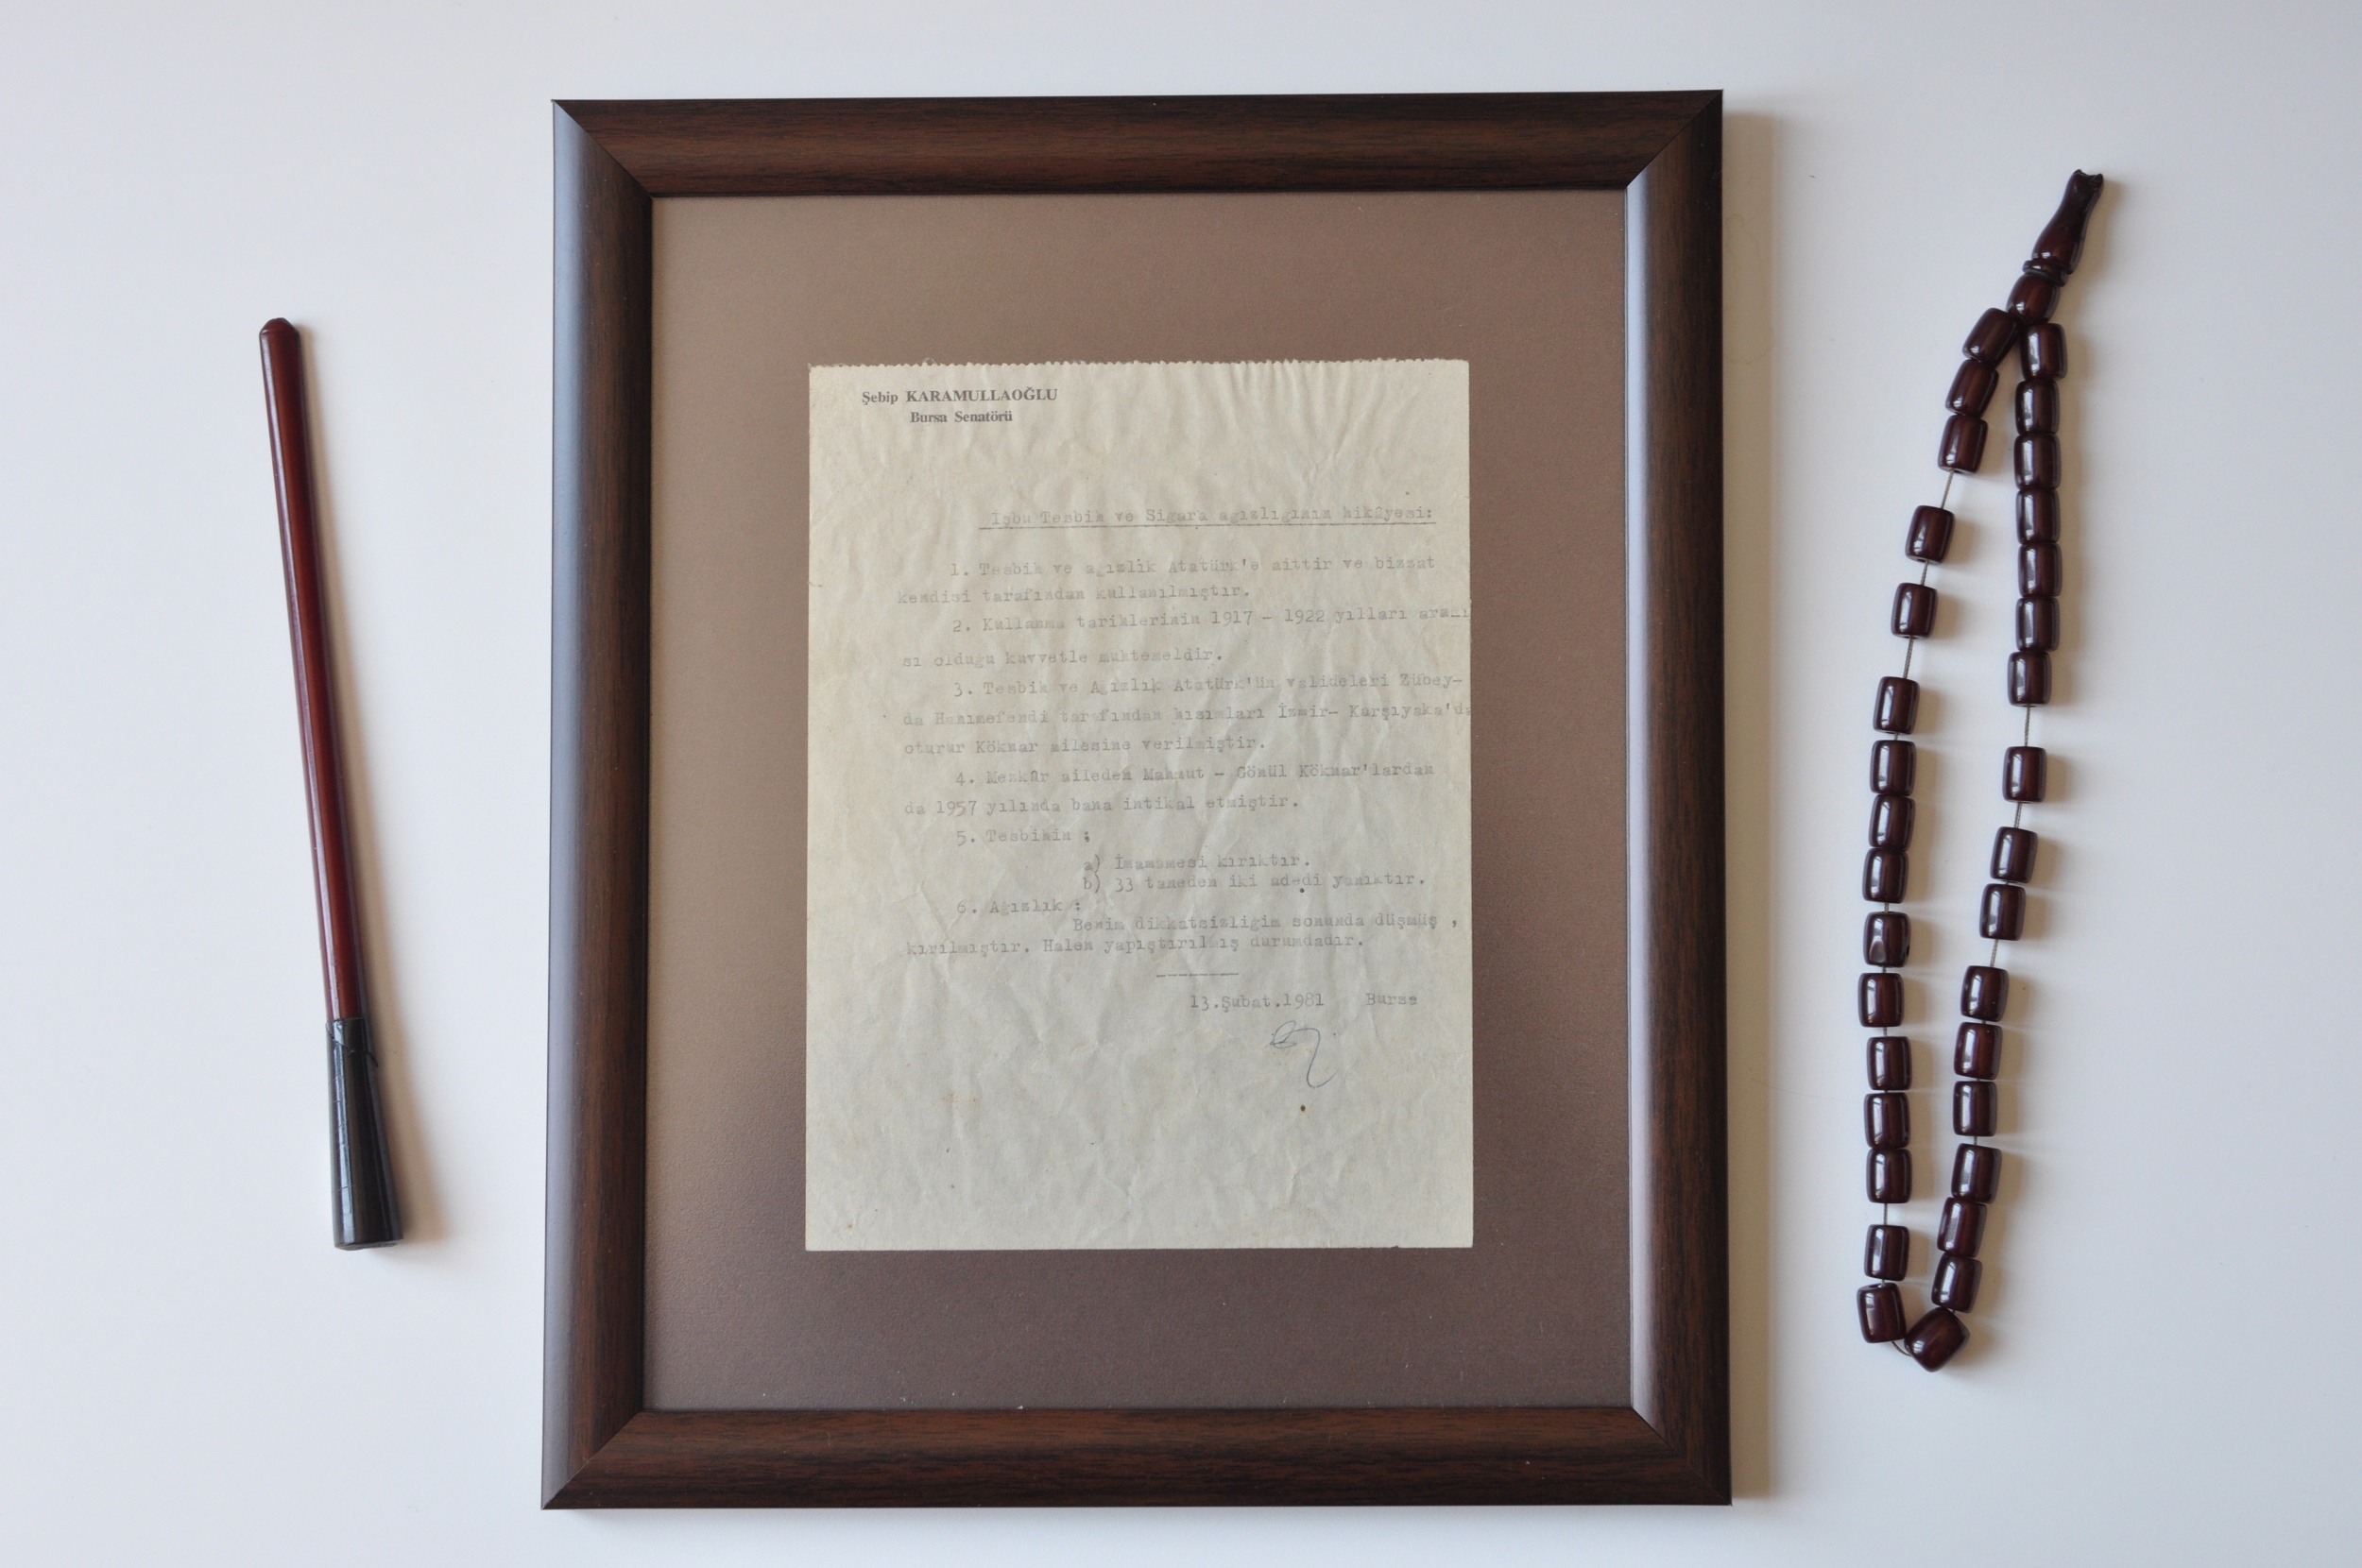 Şebip KARAMULLAOĞLU
Bursa Senatörü
İşbu Tesbih ve Sigara ağızlığının hikâyesi:
1. Tesbih ve ağızlık Atatürk'e aittir ve bizzat
kendisi tarafından kullanılmıştır.
2. Kullanma tarihlerinin 1917 - 1922 yılları aralı
sı olduğu kuvvetle muhtemeldir.
3. Tesbih ve Ağızlık Atatürk'ün valideleri Zübey-
da Hanımefendi tarafından hısımları İzmir- Karşıyaka'da
oturur Köknar ailesine verilmiştir.
4. Mezkûr aileden Mahmut - Gönül Köknar'lardan
da 1957 yılında bana intikal etmiştir.
5. Tesbihin ;
a) İmamamesi kırıktır.
b) 33 taneden iki adedi yanıktır.
6. Ağızlık :
Benim dikkatsizliğim sonunda düşmüş ,
kırılmıştır. Halen yapıştırılmış durumdadır.
13.Şubat.1981 Bursa